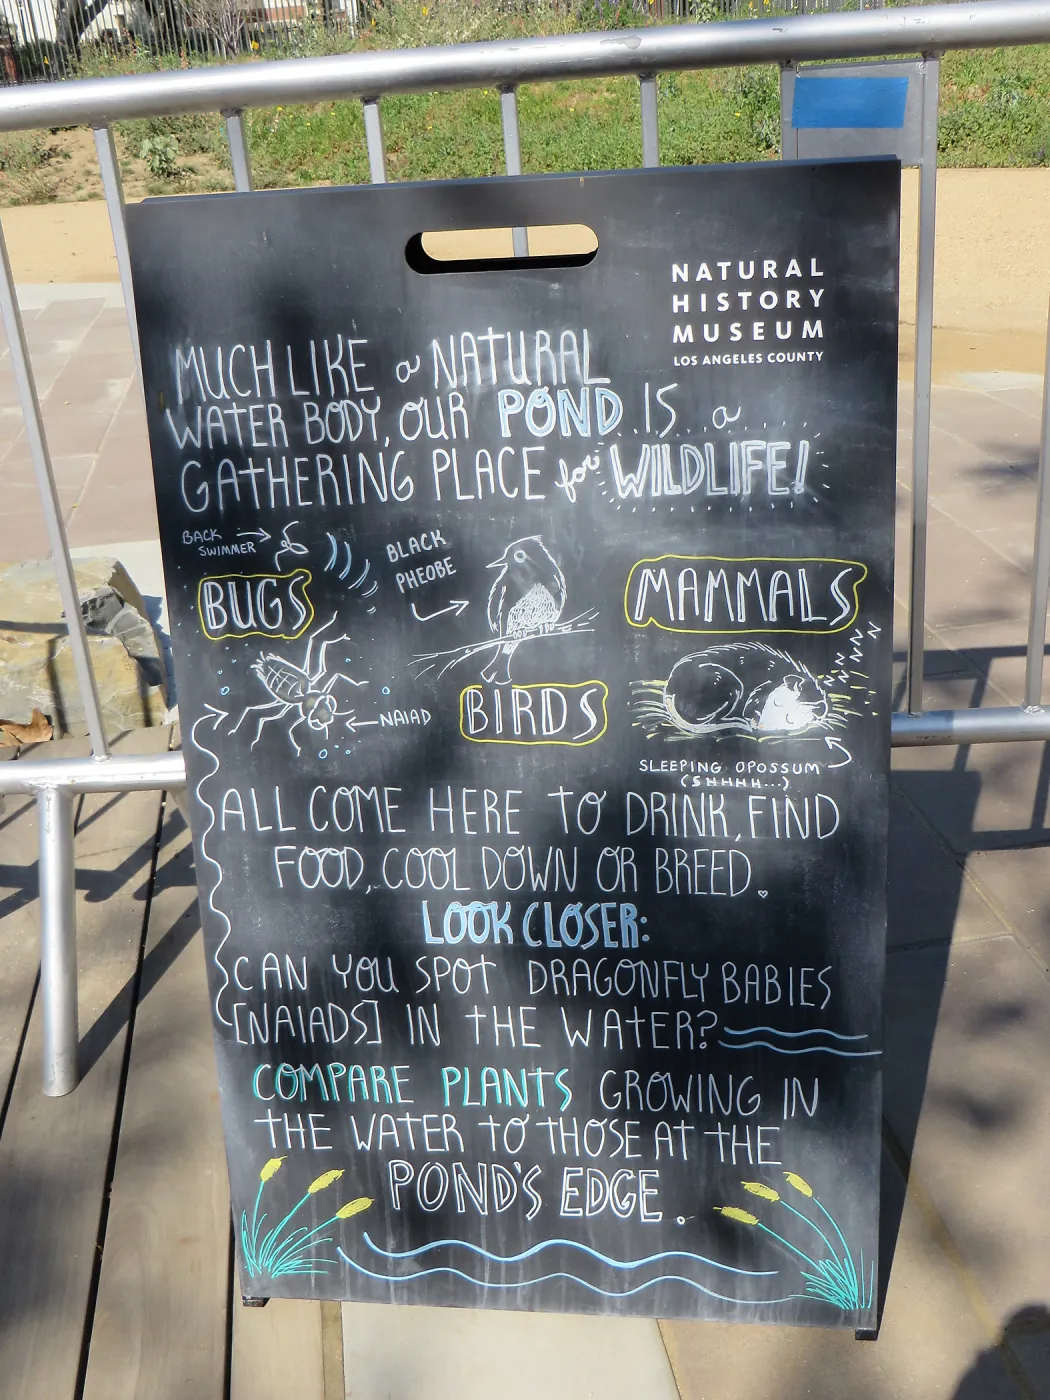 NATURAL
HISTORY
MUSEUM
LOS ANGELES COUNTY
MUCH LIKE a NATURAL
WATER BODY, OUR POND IS a
GATHERING PLACE for WILDLIFE!
BACK
SWIMMER
BUGS
NAIAD
BLACK
PHEOBE
BIRDS
MAMMALS
ZZZ
ZZZ
SLEEPING OPOSSUM
(SHHHH...)
ALL COME HERE TO DRINK, FIND
FOOD, COOL DOWN OR BREED.
LOOK CLOSER:
CAN YOU SPOT DRAGONFLY BABIES
[NAIADS] IN THE WATER?
COMPARE PLANTS GROWING IN
THE WATER TO THOSE AT THE
POND'S EDGE.